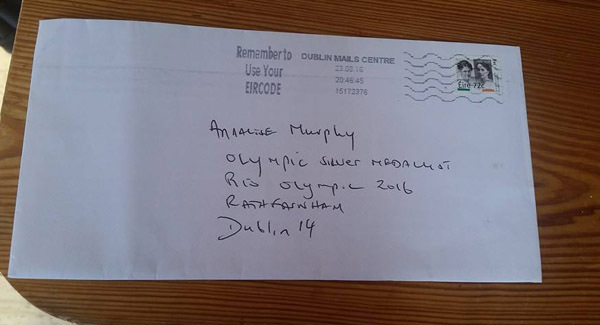 Remember to
Use Your
EIRCODE
DUBLIN MAILS CENTRE
23.08.16
20:46:45
15173376
Éire 72c
Annalise Murphy
Olympic Silver Medallist
Rio Olympic 2016
RATHFARNHAM
Dublin 14